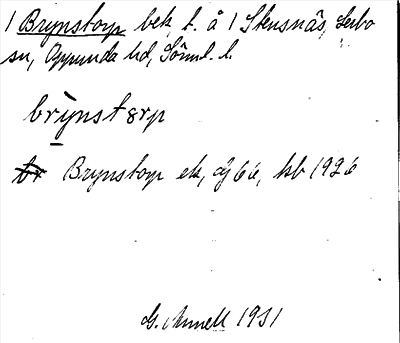 1 Brynstorp bek, t. å 1 Stensnäs, Lerbo
sn, Oppunda hd, Söml. l.
brỳnstərp
Brynstorp ek, dj 66, kb 1926
G. Annell 1931